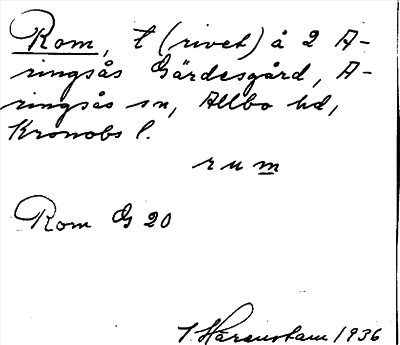 Rom, t (rivet) å 2 A-
ringsås Gärdesgård, A-
ringsås sn, Allbo hd,
Kronobs l.
rum
Rom G 20
1936